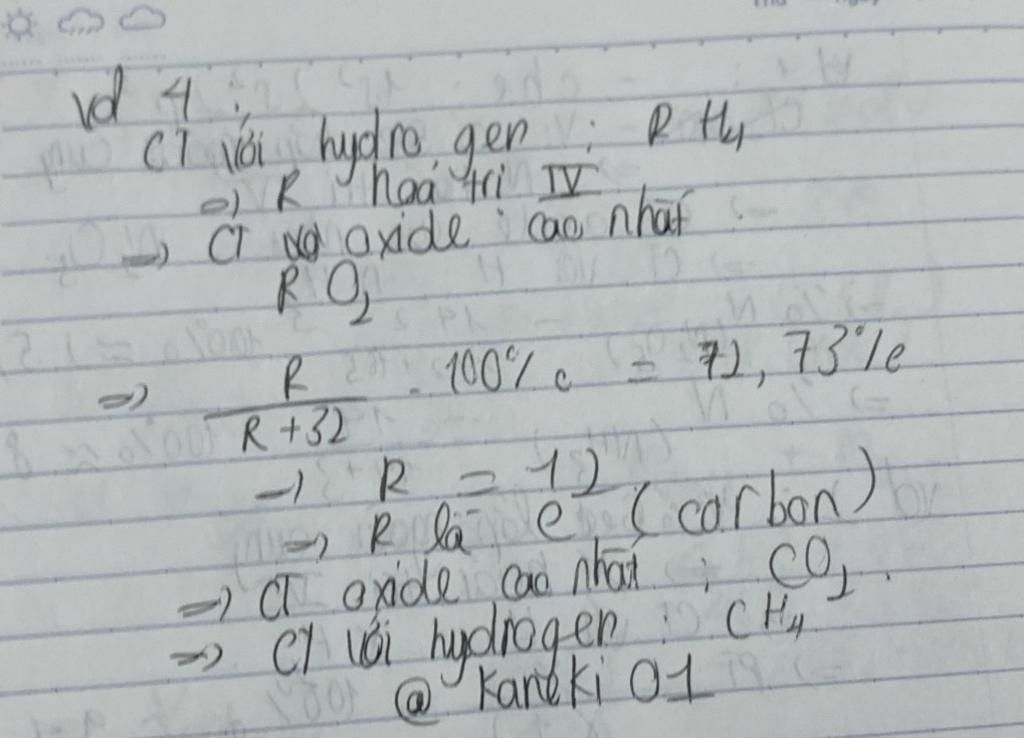 vd 4 :
CT với hydro gen : RH₄
=> R hoá trị IV
=> CT oxide cao nhất
RO₂
=> R / (R + 32) . 100% = 72,73%
=> R = 12
=> R là C (carbon)
=> CT oxide cao nhất : CO₂.
=> CT với hydrogen : CH₄
@ Kaneki 01